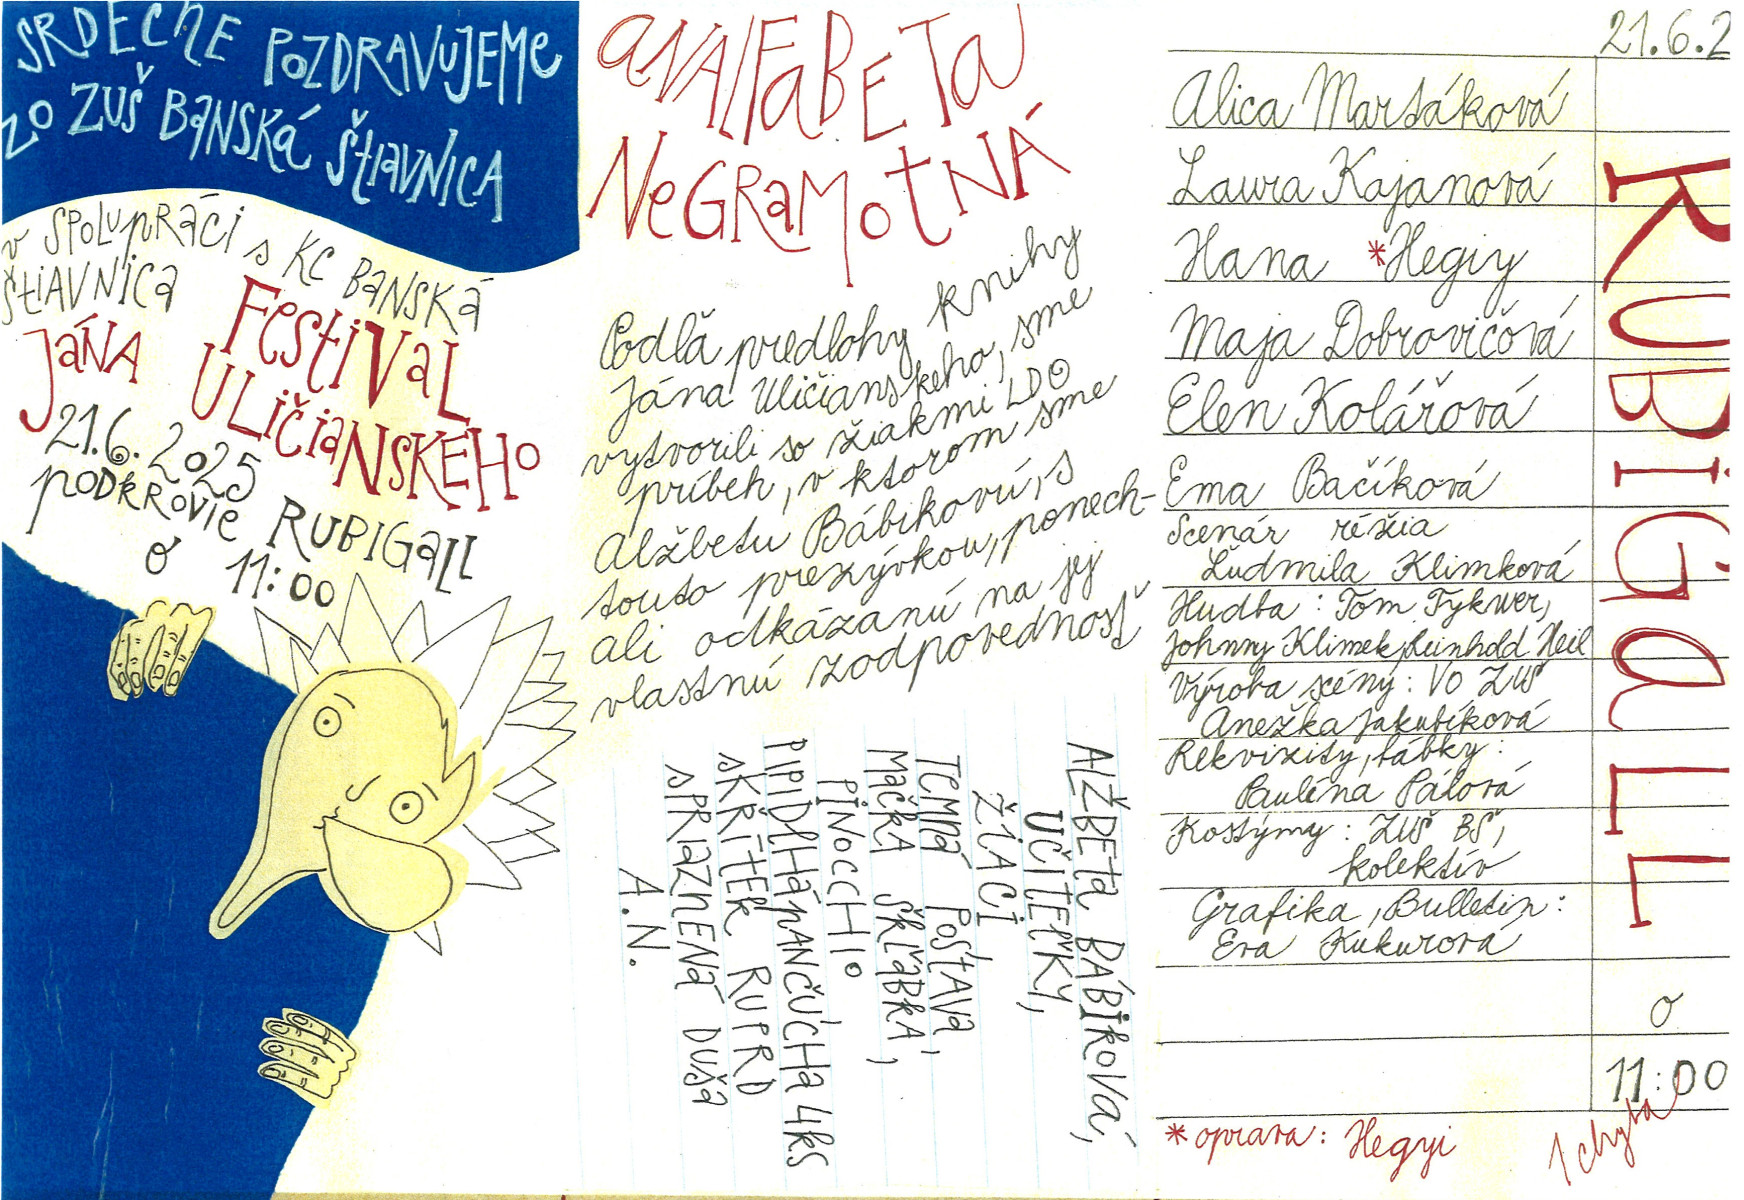 SRDEČNE POZDRAVUJEME
ZO ZUŠ BANSKÁ ŠTIAVNICA
v SPOLUPRÁCI s KC BANSKÁ
ŠTIAVNICA
FESTIVAL
JÁNA ULIČIANSKEHO
21.6.2025
PODKROVIE RUBIGALL
o 11:00
ANALFABETA
NEGRAMOTNÁ
Podľa predlohy knihy
Jána Uličianskeho, sme
vytvorili so žiakmi LDO
príbeh, v ktorom sme
Alžbetu Bábikovú, s
touto prezývkou, ponech-
ali odkázanú na jej
vlastnú zodpovednosť
ALŽBETA BÁBIKOVÁ,
UČITEĽKY,
ŽIACI
TEMNÁ POSTAVA,
MAČKA ŠKĽABKA,
PINOCCHIO
PIPIDLHÁPANČUCHA 4KS
SKŘÍTEK RUPRD
SPRIAZNENÁ DUŠA
A.N.
21.6.2
Alica Marsáková
Laura Kajanová
Hana *Hegiy
Maja Dobrovičová
Elen Kolářová
Ema Bačíková
Scenár réžia
Ľudmila Klimková
Hudba : Tom Tykwer,
Johnny Klimek, Reinhold Heil
Výroba scény : VO ZUŠ
Anežka Jakubíková
Rekvizity, bábky :
Paulína Pálová
Kostýmy : ZUŠ BŠ,
kolektív
Grafika, Bulletin :
Eva Kukurová
RUBIGALL
o
11:00
*oprava: Hegyi
1 chyba